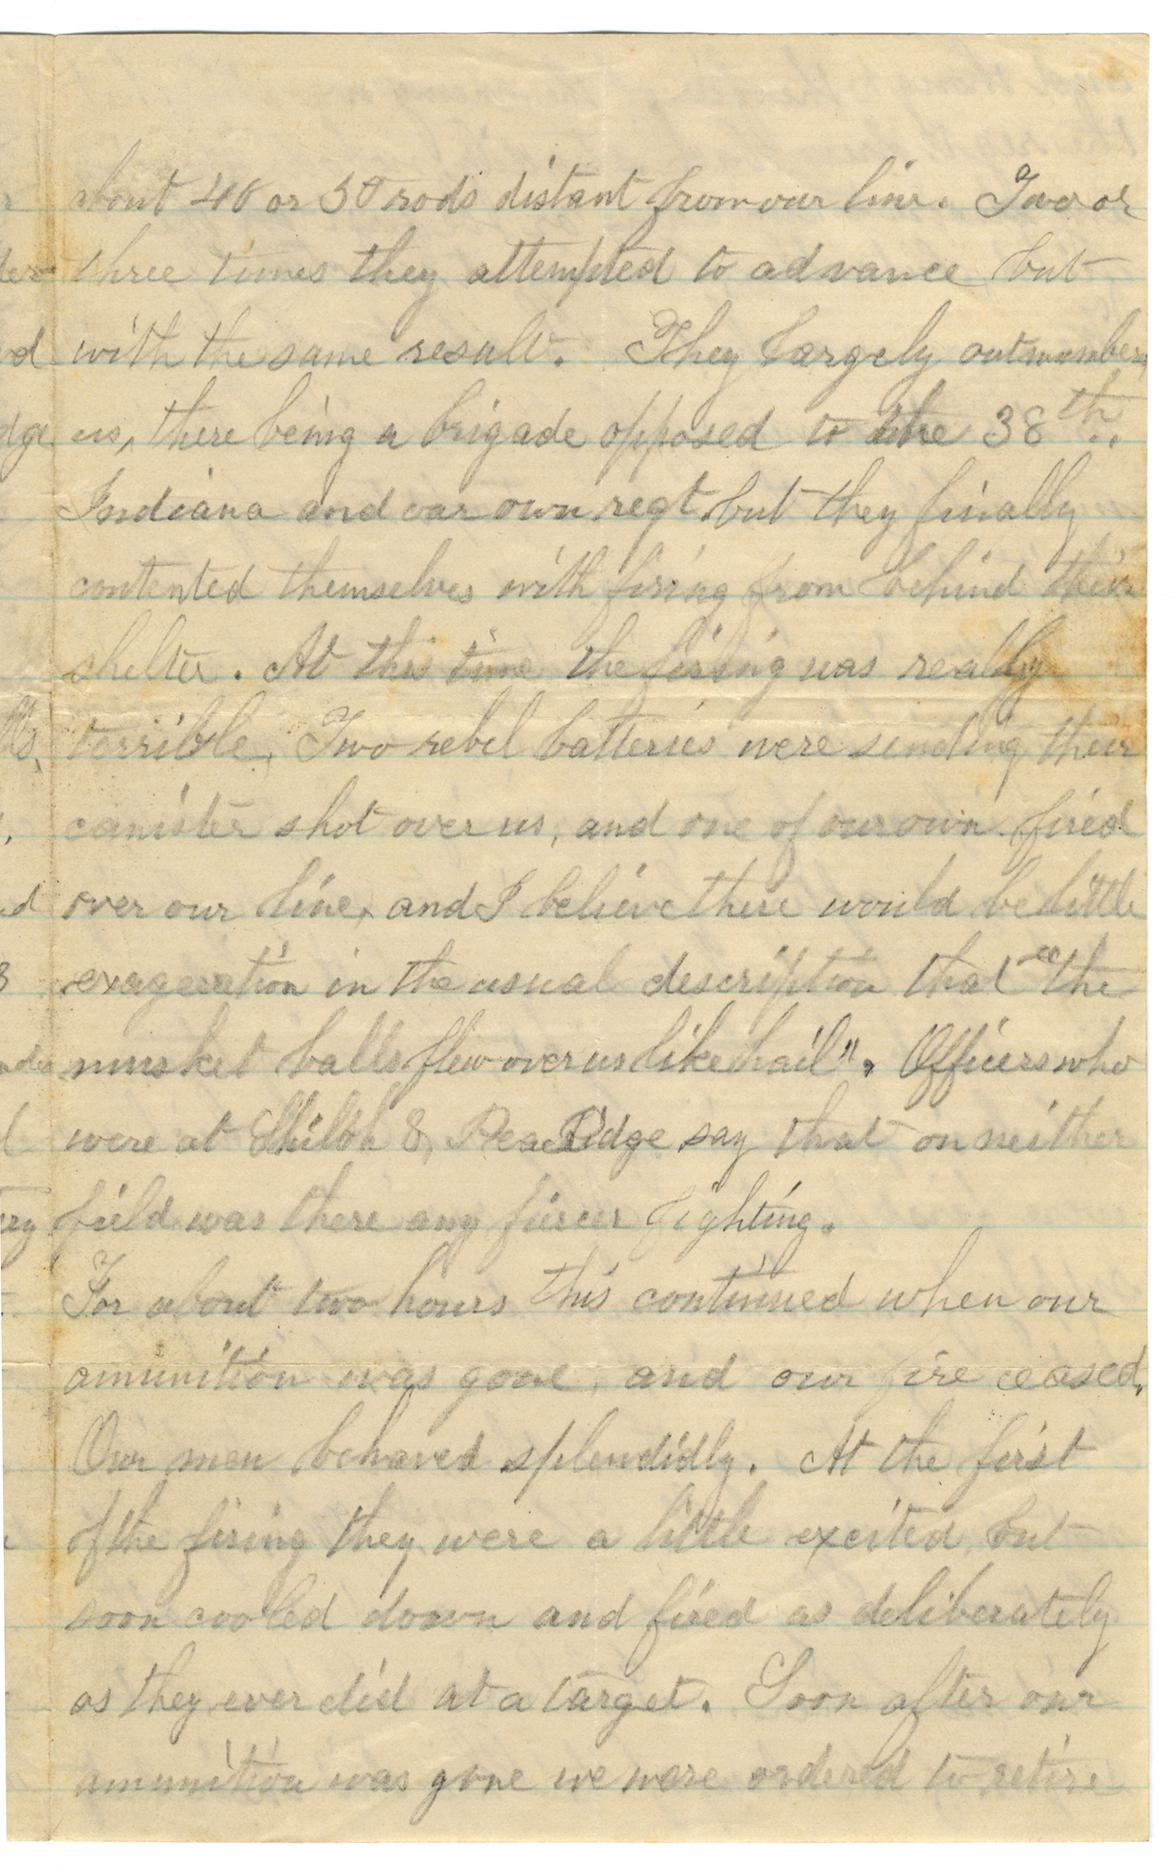 about 40 or 50 rods distant from our line. Two or
three times they attempted to advance but
with the same result. They largely outnumber
us, there being a brigade opposed to the 38th
Indiana and our own regt. but they finally
contented themselves with firing from behind their
shelter. At this time the firing was really
terrible, Two rebel batteries were sending their
canister shot over us, and one of our own fired
over our line, and I believe there would be little
exageration in the usual description that "the
musket balls flew over us like hail". Officers who
were at Shiloh & Pea Ridge say that on neither
field was there any fiercer fighting.
For about two hours this continued when our
amunition was gone, and our fire ceased.
Our men behaved splendidly. At the first
of the firing they were a little excited, but
soon cooled down and fired as deliberately
as they ever did at a target. Soon after our
amunition was gone we were ordered to retire